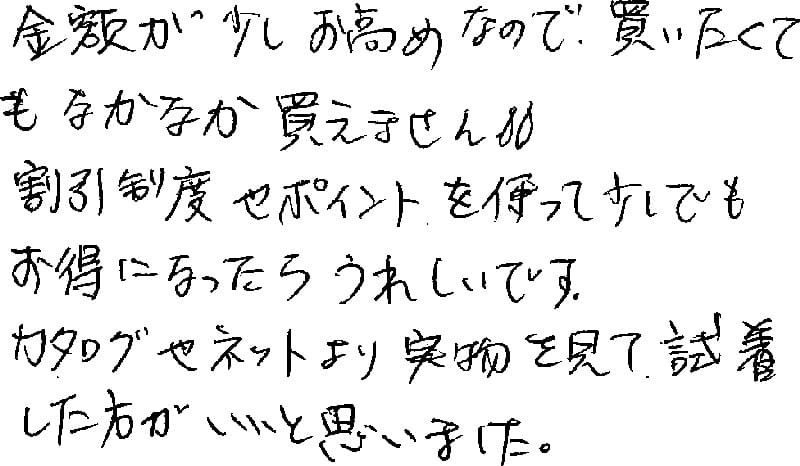 金額が少しお高めなので、買いたくて
もなかなか買えません
割引制度やポイントを使って少しでも
お得になったらうれしいです。
カタログやネットより実物を見て試着
した方がいいと思いました。